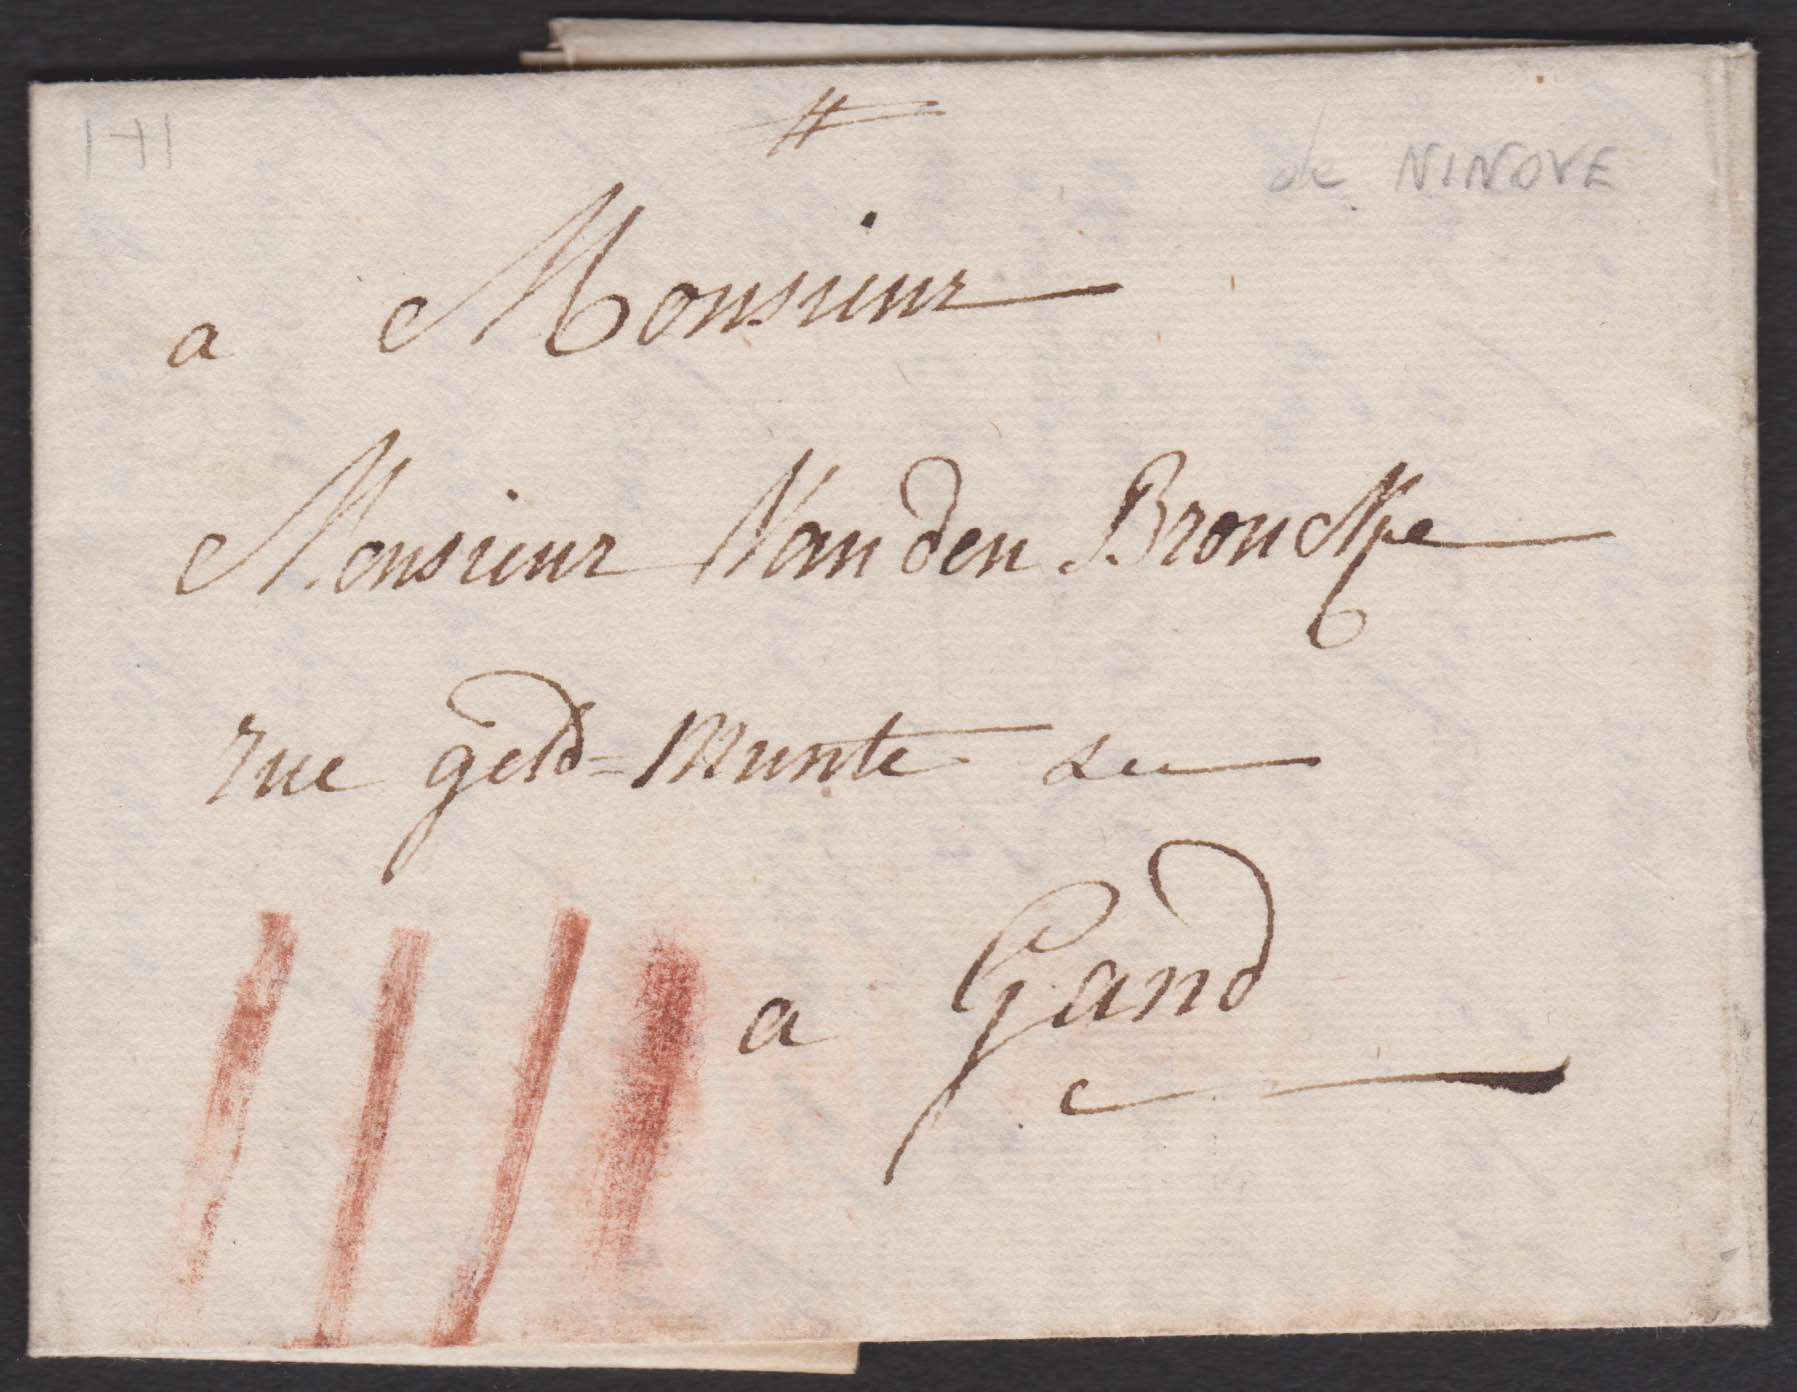 de NINOVE
a Monsieur
Monsieur Vanden Brouckpe
rue geld=munte
a Gand